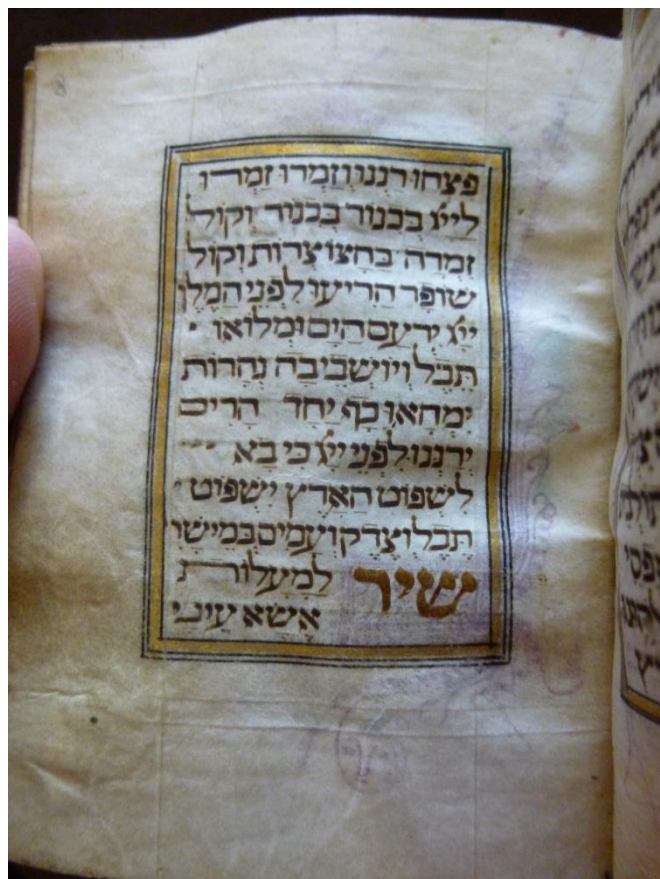 פצחו ורננו וזמרו זמרו
לייי בכנור בכנור וקול
זמרה בחצוצרות וקול
שופר הריעו לפני המלך
ייי ירעם הים ומלואו
תבל ויושבי בה נהרות
ימחאו כף יחד הרים
ירננו לפני ייי כי בא
לשפוט הארץ ישפוט
תבל וצדק ועמים במישרי
שיר למעלות
אשא עיני